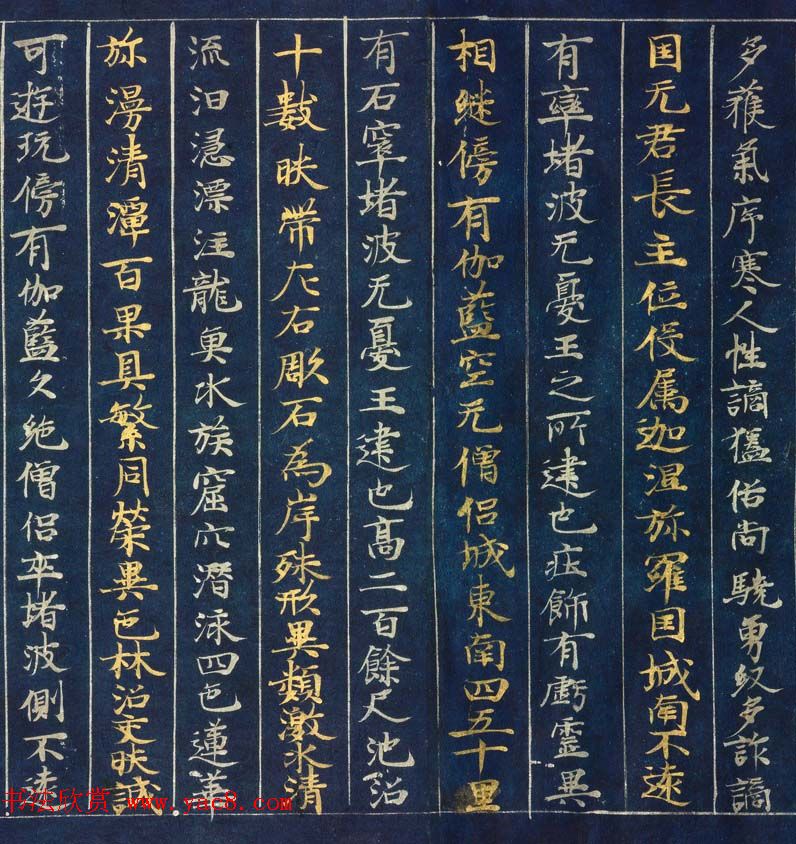 多獲氣序寒人性謫猛俗尚驍勇紋多詐謫
国无君長主位伇属迦湿弥羅国城南不遠
有窣堵波无憂王之所建也庄飾有虧霊異
相継傍有伽藍空无僧侶城東南四五十里
有石窣堵波无憂王建也高二百餘尺池沼
十數映帶左右彫石為岸殊形異類激水清
流汩漂注龍魚水族窟穴潛泳四色蓮華
弥漫清潭百果具繁同榮異色林沼交映誠
可遊玩傍有伽藍久絶僧侶窣堵波側不遠
书法欣赏 www.yac8.com